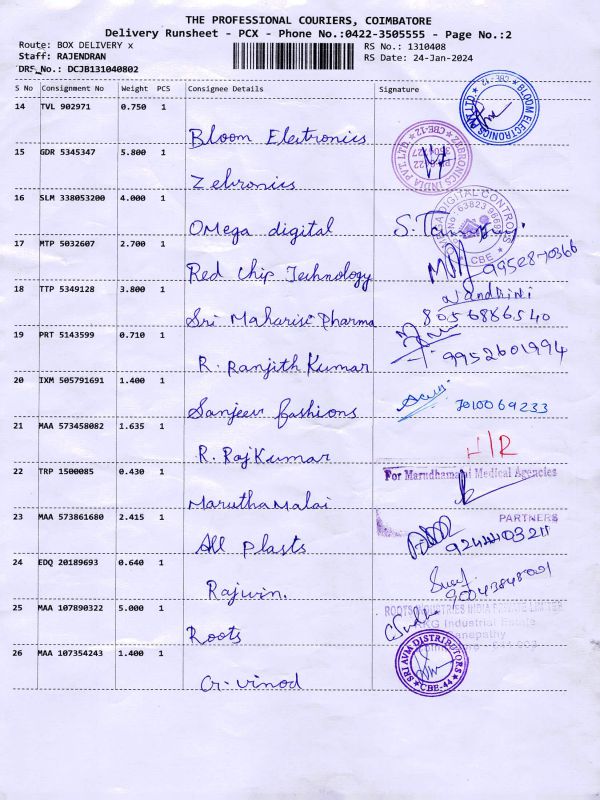 THE PROFESSIONAL COURIERS, COIMBATORE
Delivery Runsheet - PCX - Phone No.:0422-3505555 - Page No.:2
Route: BOX DELIVERY x
RS No.: 1310408
Staff: RAJENDRAN
RS Date: 24-Jan-2024
DRS No.: DCJB131040802
S No Consignment No Weight PCS Consignee Details Signature
14 TVL 902971 0.750 1
Bloom Electronics
BLOOM ELECTRONICS PVT LTD CBE-12
15 GDR 5345347 5.800 1
Zebronics
ZEBRONICS INDIA PVT. LTD. CBE-12
16 SLM 338053200 4.000 1
Omega digital
DIGITAL CONTROLS CBE
17 MTP 5032607 2.700 1
Red Chip Technology
18 TTP 5349128 3.800 1
Nandhini
Sri Maharise Pharma
8056886540
19 PRT 5143599 0.710 1
R. Ranjith Kumar
9952601994
20 IXM 505791691 1.400 1
Sanjeev fashions
7010069233
21 MAA 573458082 1.635 1
H/R
R. RajKumar
22 TRP 1500085 0.430 1
For Marudhamalai Medical Agencies
Maruthamalai
23 MAA 573861680 2.415 1
PARTNERS
All Plasts
9244403211
24 EDQ 20189693 0.640 1
Rajwin.
25 MAA 107890322 5.000 1
ROOTS INDUSTRIES INDIA PRIVATE LIMITED
Industrial Estate
Roots
26 MAA 107354243 1.400 1
Cr. Vinod
SRI AVM DISTRIBUTORS CBE-44